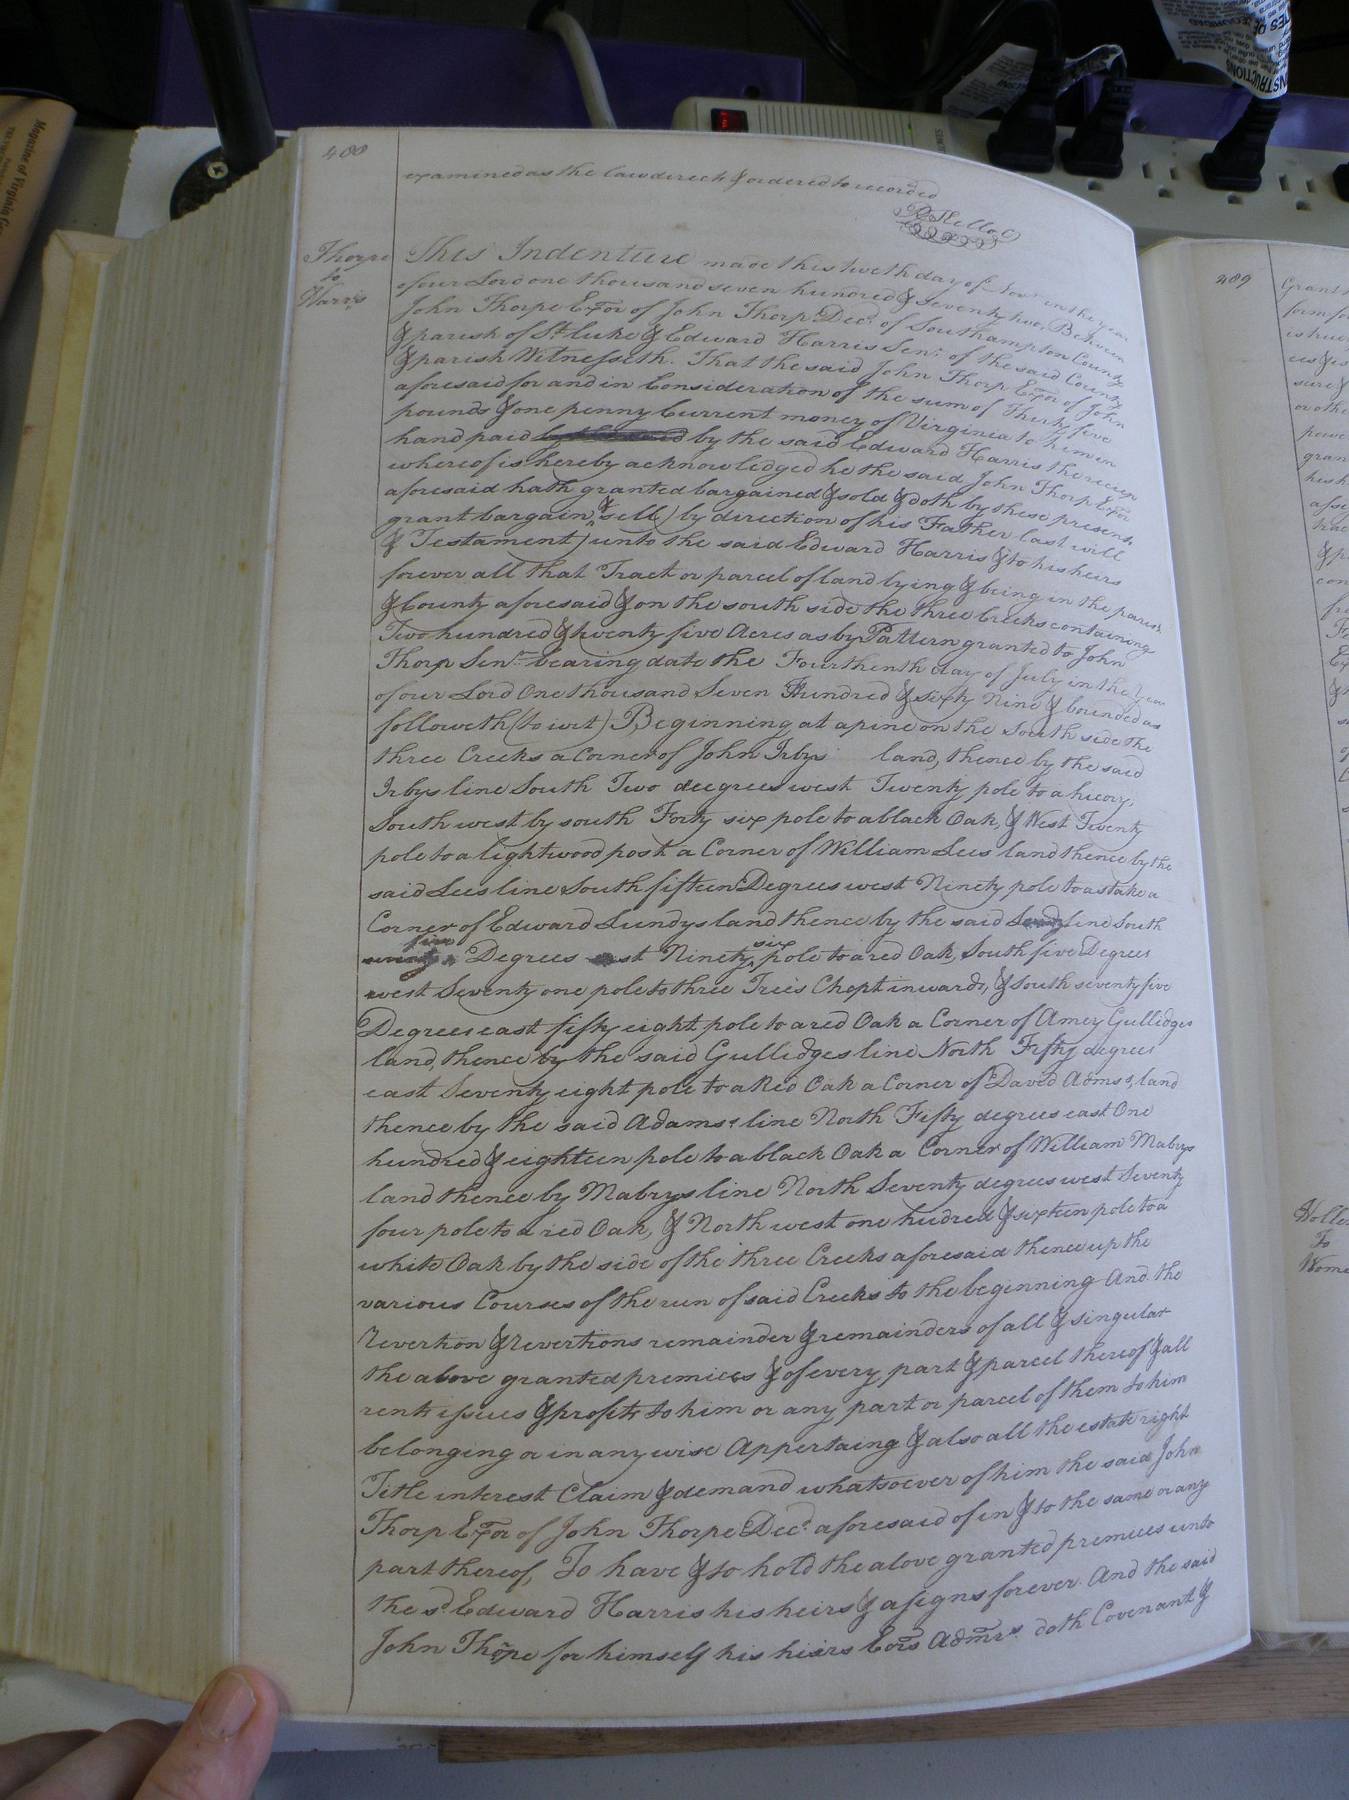 488
examined as the law directs & ordered to recorded
R Kello C
Thorpe
to
Harris
This Indenture made this twelth day of Novr in the year
of our Lord one thousand seven hundred & seventy two, Between
John Thorpe Exor of John Thorp Decd. of Southampton County
& parish of St. Luke & Edward Harris Senr. of the said County
& parish Witnesseth. That the said John Thorp Exor of John
aforesaid for and in Consideration of the sum of Thirty five
pounds & one penny Current money of Virginia to him in
hand paid by the said Edward Harris the receipt
whereof is hereby acknowledged he the said John Thorp Exor
aforesaid hath granted bargained & sold & doth by these presents
grant bargain & sell) by direction of his Father last will
& Testament) unto the said Edward Harris & to his heirs
forever all that Tract or parcel of land lying & being in the parish
& County aforesaid & on the south side the three Creeks containing
Two hundred & twenty five Acres as by Pattern granted to John
Thorp Senr. bearing date the Fourthenth day of July in the Year
of our Lord One thousand Seven Hundred & sixty Nine & bounded as
followeth (to wit) Beginning at a pine on the South side the
three Creeks a Corner of John Irbys land, thence by the said
Irbys line South Two deegrees west Twenty pole to a hicory,
South west by south Forty six pole to a black Oak, & West Twenty
pole to a lightwood post a Corner of William Lees land thence by the
said Lees line South fifteen Degrees west Ninety pole to a stake a
Corner of Edward Lundys land thence by the said line South
five
Degrees Ninety six pole to a red Oak, South five Degrees
west Seventy one pole to three Trees Chopt inwards, & South seventy five
Degrees east fifty eight pole to a red Oak a Corner of Amey Gullidges
land, thence by the said Gullidges line North Fifty degrees
east Seventy eight pole to a Red Oak a Corner of David Adms's, land
thence by the said Adams's line North Fifty degrees east One
hundred & eighteen pole to a black Oak a Corner of William Mabrys
land thence by Mabrys line North Seventy degrees west Seventy
four pole to a red Oak, & North west one hudred & sixteen pole to a
white Oak by the side of the three Creeks aforesaid thence up the
various Courses of the run of said Creeks to the beginning And the
revertion & revertions remainder & remainders of all & singular
the above granted premices & of every part & parcel thereof & all
rents issues & profits to him or any part or parcel of them to him
belonging or in any wise Appertaing & also all the estate right
Title interest Claim & demand whatsoever of him the said John
Thorp Exor of John Thorpe Decd. aforesaid of in & to the same or any
part thereof, To have & to hold the above granted premices unto
the sd. Edward Harris his heirs & asigns forever. And the said
John Thope for himself his hiers Eors Admrs. doth Covenant &
489
Grant
form
Holle
To
Wome
Magazine of Virginia